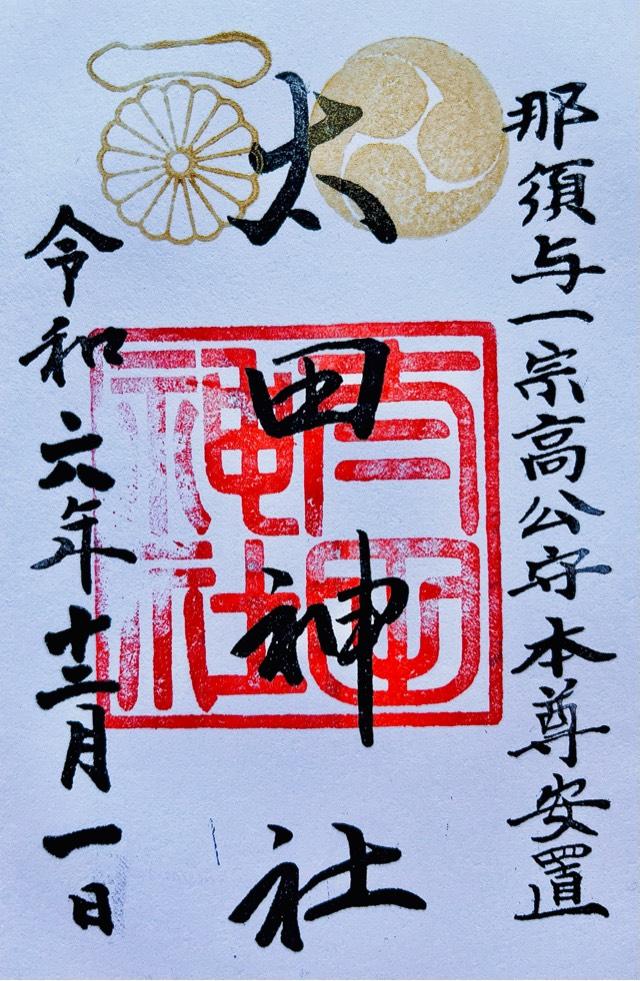 那須与一宗高公守本尊安置
太田神社
太田神社
令和六年十二月一日